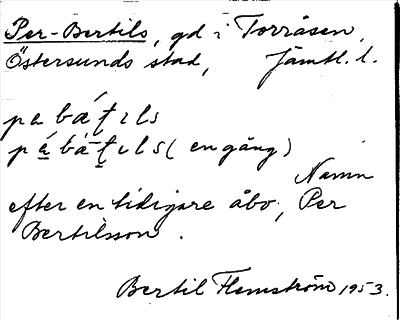 Per-Bertils, gd i Torråsen,
Östersunds stad, Jämtl. l.
pa bá́ṭıls
pá bà́ṭıls (en gång)
Namn
efter en tidigare åbo, Per
Bertilsson.
Bertil Flemström 1953.